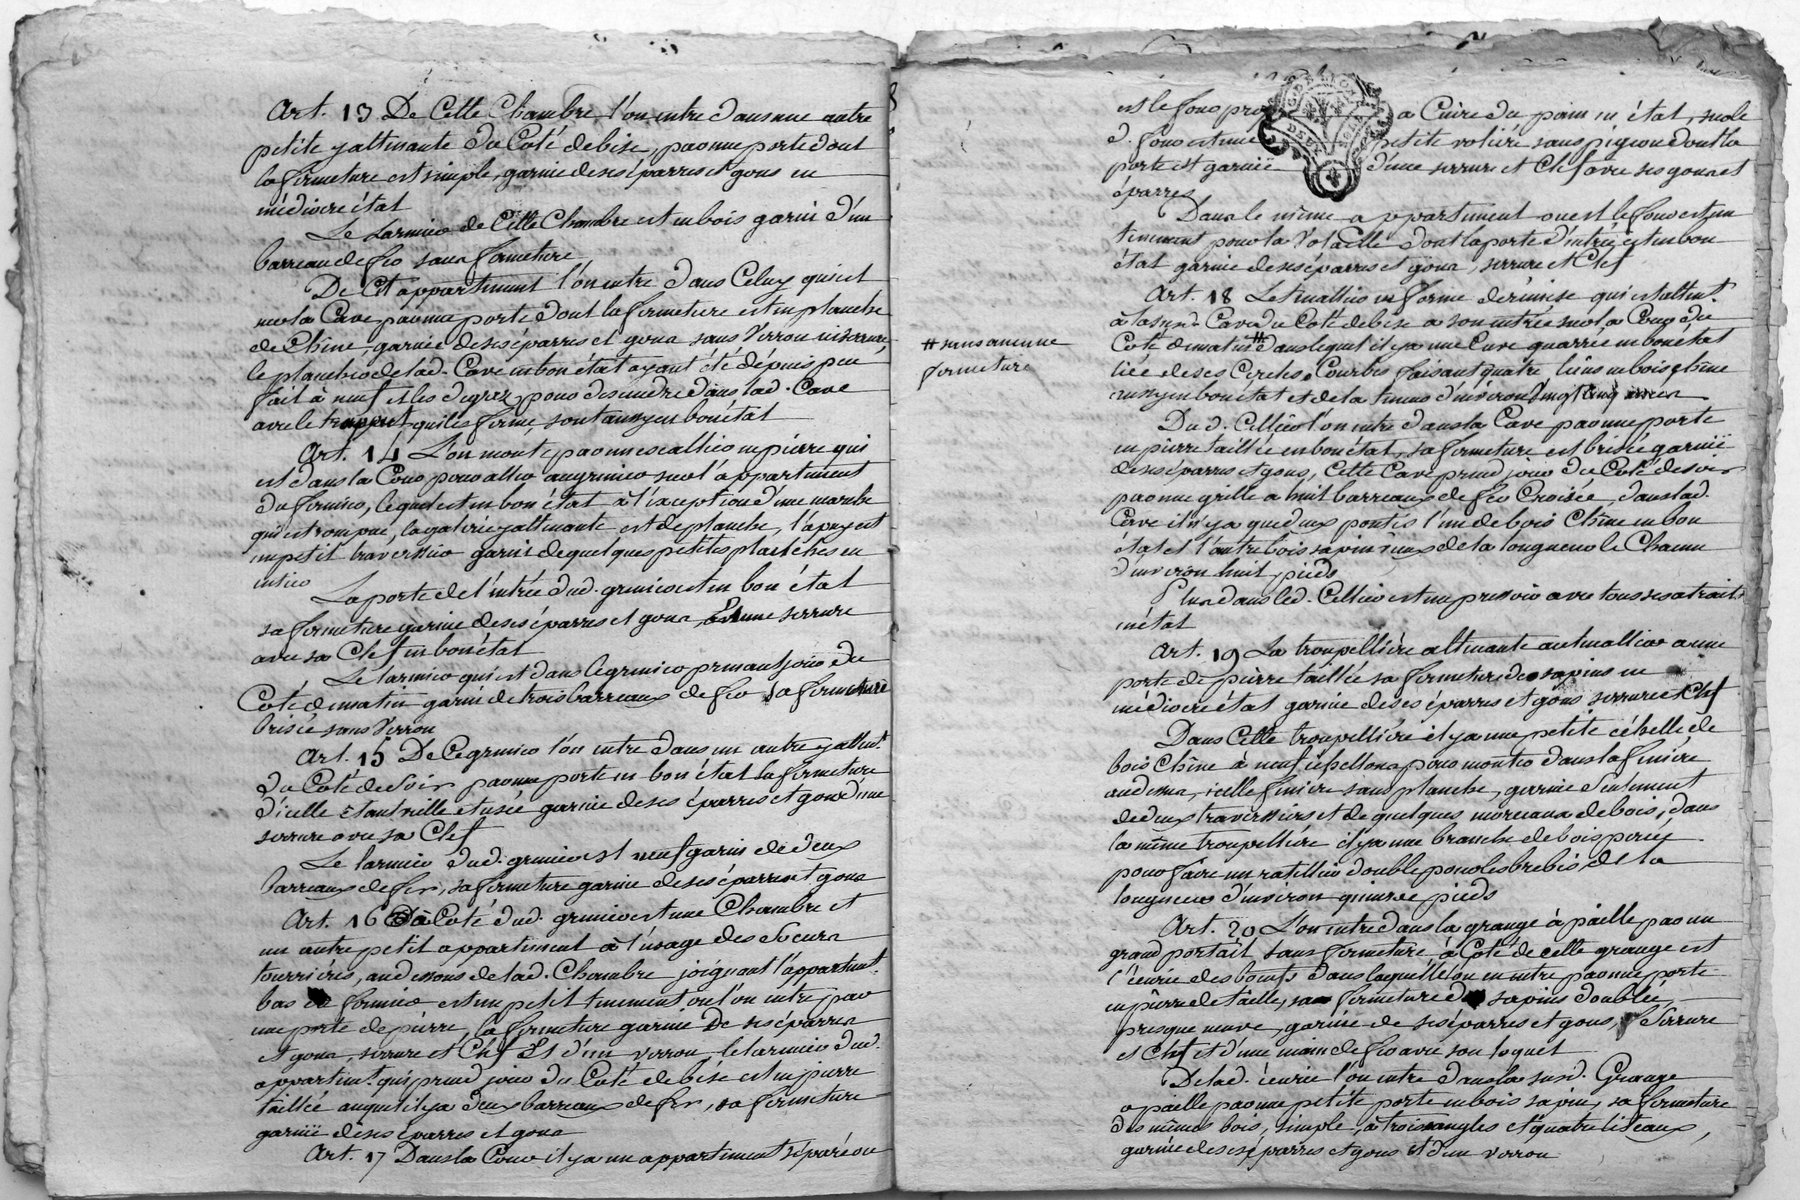 Art. 13 De Cette Chambre l'on entre dans une autre
petite y attenante du Coté de bise, par une porte dont
la fermeture est simple, garnie de ses éparres et gons en
médiocre état
Le Larmier de Cette Chambre est en bois garni d'un
barreau de fer sans fermeture
De Cet appartement l'on entre dans Celuy qui est
sur la Cave par une porte dont la fermeture est en planche
de Chêne, garnie de ses éparres et gons sans Verrou ni serrure,
le planchér de lad. Cave en bon état ayant été dépuis peu
fait à neuf et les degrez pour descendre dans lad. Cave
avec le trappet qui les ferme, sont aussy en bon état
Art. 14 L'on monte par un escallier en pierre qui
est dans la Cour pour aller au grenier sur l'appartement
du fermier, lequel est en bon état à l'exception d'une marche
qui est rompue, la galerie y attenante est de planche, l'apuy est
un petit traversier garni de quelques petites planches en
entier
La porte de l'entrée dud. grenier est en bon état
sa fermeture garnie de ses éparres et gons, d'une serrure
avec sa Clef en bon état
Le larmier qui est dans le grenier prenant jour du
Coté de matin garni de trois barreaux de fer sa fermeture
brisée sans Verrou
Art. 15 De Ce grenier l'on entre dans un autre y attent.
du Coté de Soir par une porte en bon état la fermeture
d'icelle étant vieille et usée garnie de ses éparres et gons d'une
serrure avec sa Clef
Le larmier dud. grenier est neuf garni de deux
barreaux de fer, sa fermeture garnie de ses éparres et gons
Art. 16 à Coté dud. grenier est une Chambre et
un autre petit appartement à l'usage des Soeurs
tourrieres, au dessous de lad. Chambre joignant l'appartmt.
bas du fermier est un petit tenement ou l'on entre par
une porte de pierre, la fermeture garnie De ses éparres
et gons, serrure et Clef Et d'un verrou le larmier dud.
appartemt. qui prend jour du Coté de bise est en pierre
taillée auquel il y a deux barreaux de fer, sa fermeture
garnie de ses éparres et gons
Art. 17 Dans la Cour il y a un appartement séparé ou
est le four pro a Cuire du pain en état, sur le
d. four est une petite voliere sans pigeon dont la
porte est garnie d'une serrure et Clef avec ses gons et
éparres
Dans le même appartement ou est le four est un
tenement pour la Volaille dont la porte d'entrée est en bon
état garnie de ses éparres et gons, serrure et Clef
Art. 18 Le tinallier en forme de remise qui est attent.
à la susd. Cave du Coté de bise a son entrée sur la Cour du
Coté de matin # dans lequel il y a une Cuve quarrée en bon état
# sans aucune
fermeture
liée de ses Cercles Courbes faisant quatre liens en bois chêne
aussy en bon état et de la tenue d'environ Vingt Cinq ânées
Du d. Cellier l'on entre dans la Cave par une porte
en pierre taillée en bon état, sa fermeture est brisée garnie
de ses éparres et gons, Cette Cave prend jour du Coté de soir
par une grille a huit barreaux de fer Croisée, dans lad.
Cave il n'y a que deux pontis l'un de bois Chêne en bon
état et l'autre bois sapin vieux de la longueur le Chacun
d'environ huit pieds
Plus dans led. Cellier est un pressoir avec tous ses atraits
en état
Art. 19 La troupelliére attenante au tinallier a une
porte de pierre taillée sa fermeture de sapins en
médiocre état garnie de ses éparres et gons serrure et Clef
Dans Cette troupelliére il y a une petite échelle de
bois Chêne à neuf échellons pour monter dans la finiere
au dessus, icelle finiere sans planche, garnie Seulement
de deux traversiers et de quelques morceaux de bois, dans
la même troupelliére il y a une branche de bois percée
pour faire un ratellier double pour les brebis de la
longueur d'environ quinze pieds
Art. 20 L'on entre dans la grange à paille par un
grand portait sans fermeture, à Coté de cette grange est
l'écurie des boeufs dans laquelle on en entre par une porte
en pierre de taille, sa fermeture de sapins doublée,
presque neuve, garnie de ses éparres et gons, Serrure
et Clef et d'une main de fer avec son loquet
De lad. écurie l'on entre dans la susd. Grange
a paille par une petite porte en bois sapin, sa fermeture
des mêmes bois, simple, à trois angles et quatre liteaux,
garnie de ses éparres et gons et d'un verrou